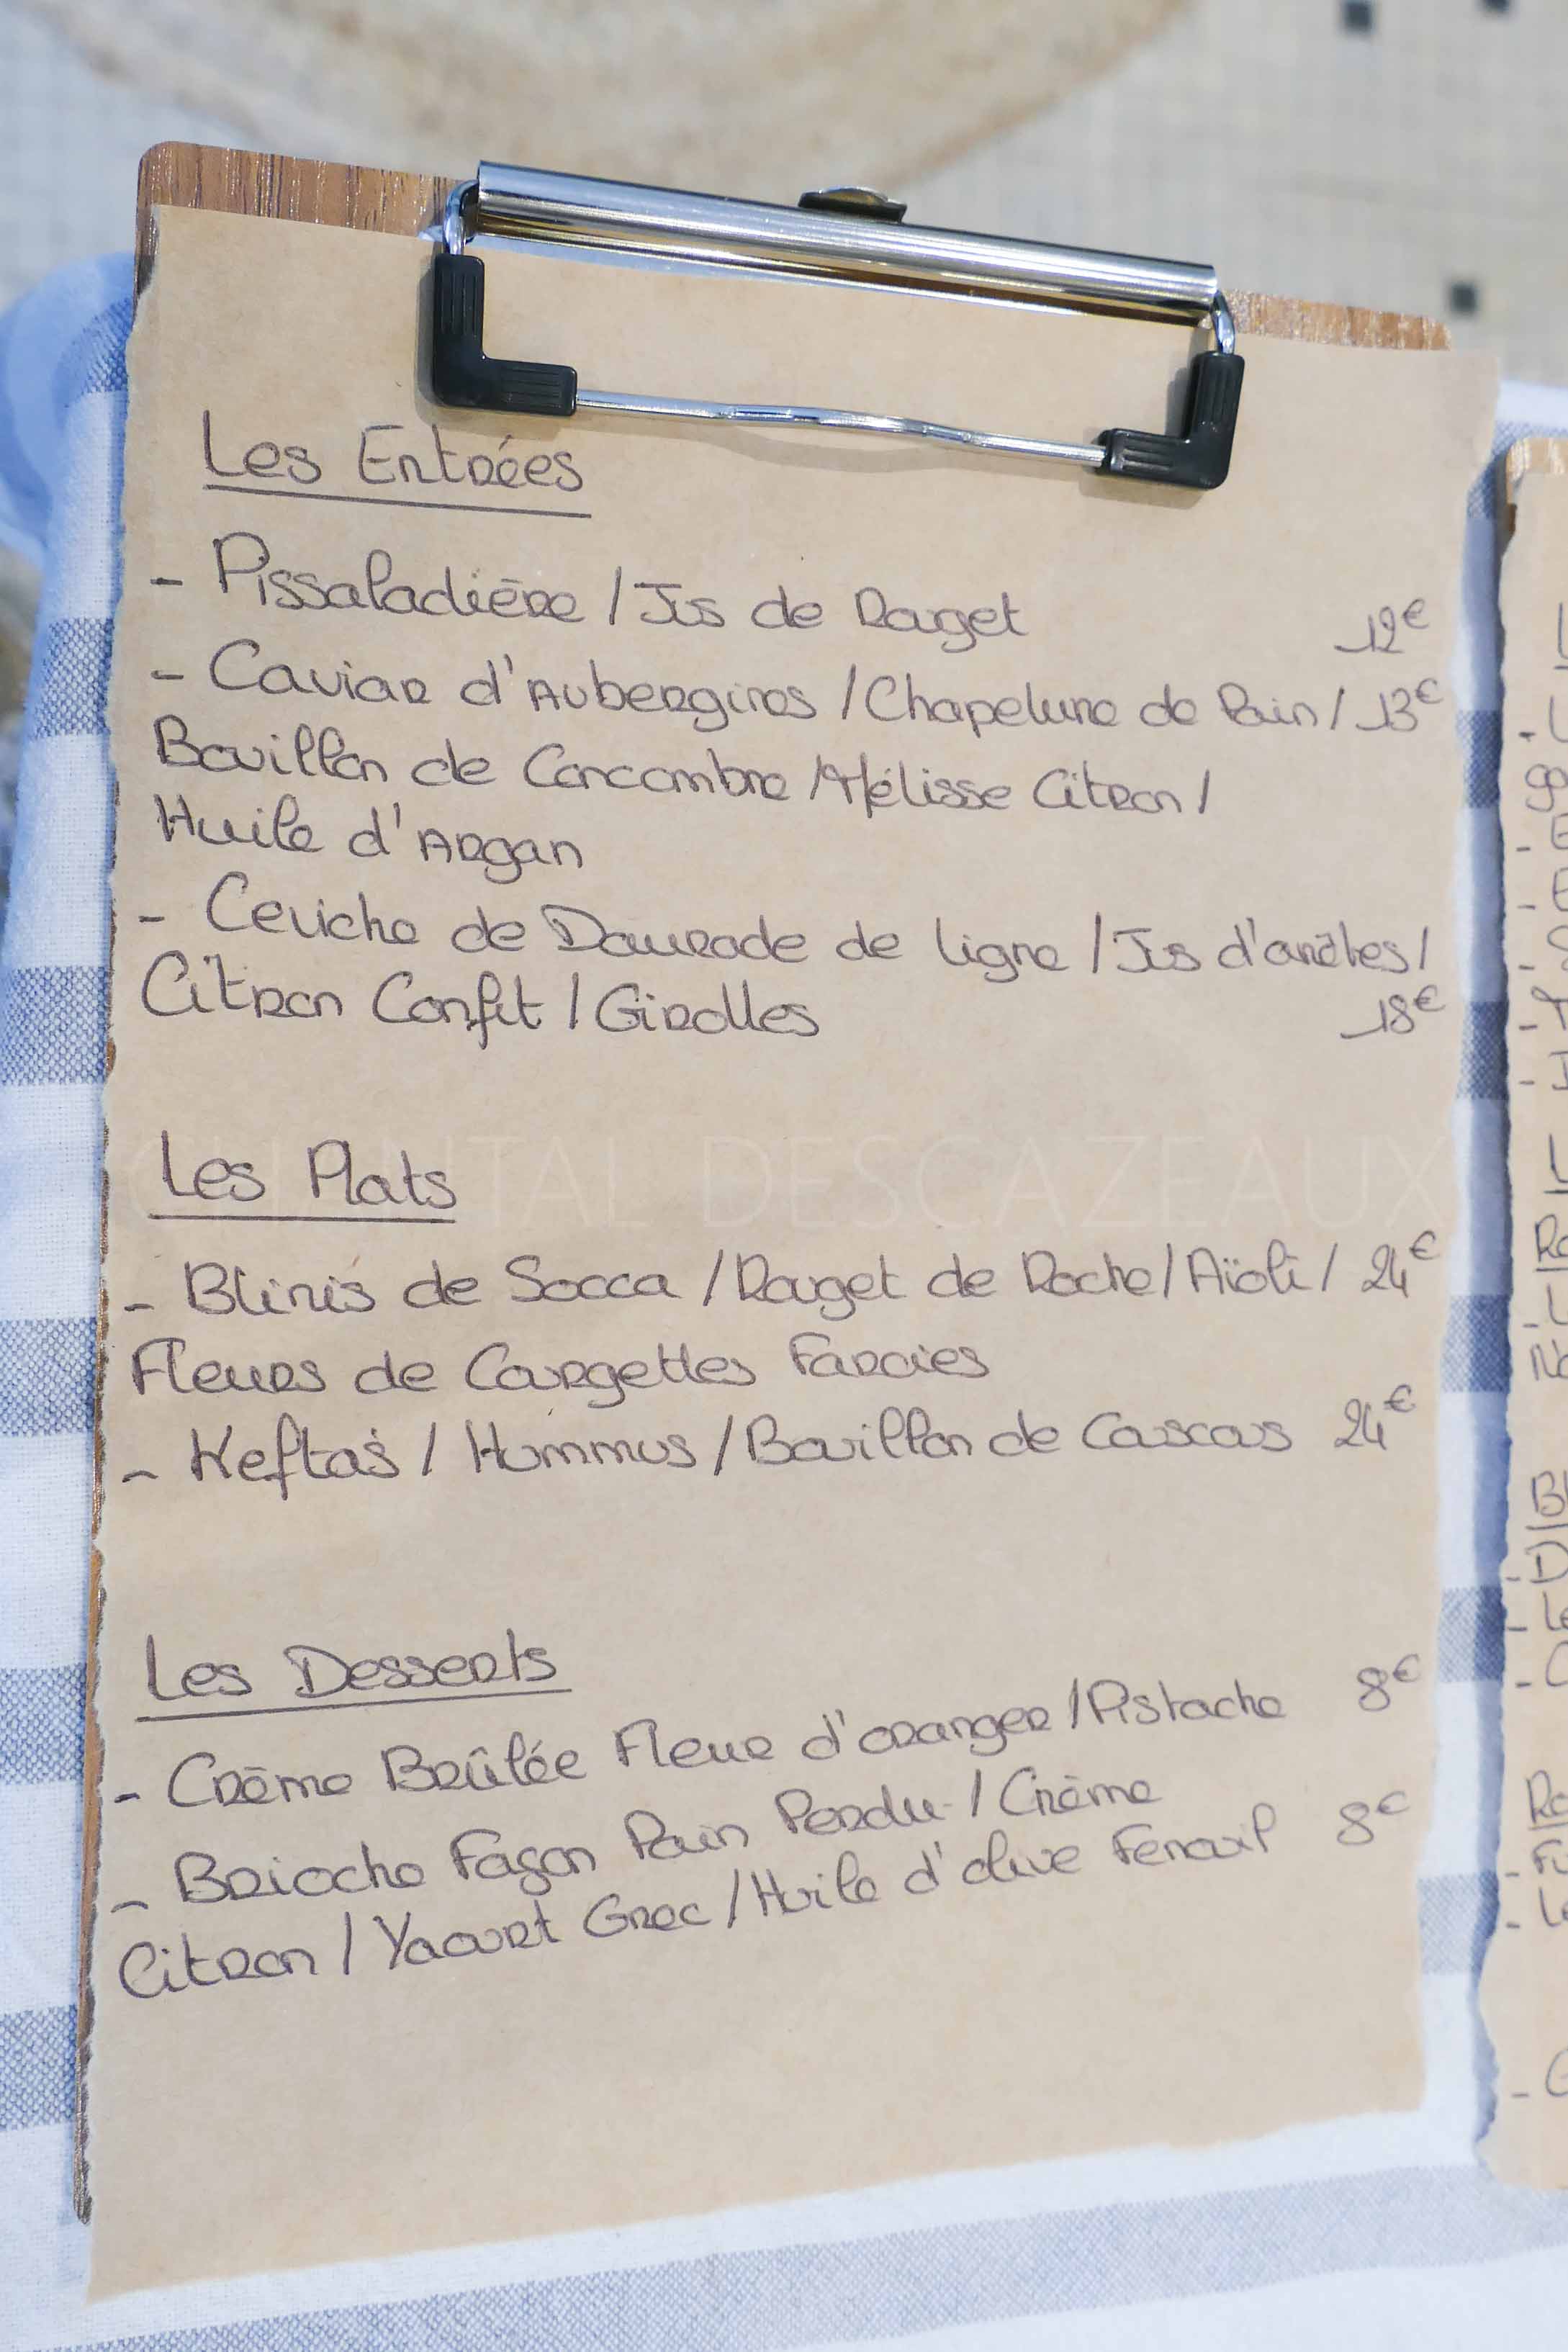 Les Entrées
- Pissaladière / Jus de Rouget 12€
- Caviar d'Aubergines / Chapelure de Pain / 13€
Bouillon de Concombre / Mélisse Citron /
Huile d'Argan
- Ceviche de Daurade de ligne / Jus d'arêtes /
Citron Confit / Girolles 18€
CHANTAL DESCAZEAUX
Les Plats
- Blinis de Socca / Rouget de Roche / Aïoli / 24€
Fleurs de Courgettes Farcies
- Keftas / Hummus / Bouillon de Couscous 24€
Les Desserts
- Crème Brûlée Fleur d'oranger / Pistache 8€
- Brioche Façon Pain Perdu / Crème
Citron / Yaourt Grec / Huile d'olive Fenouil 8€